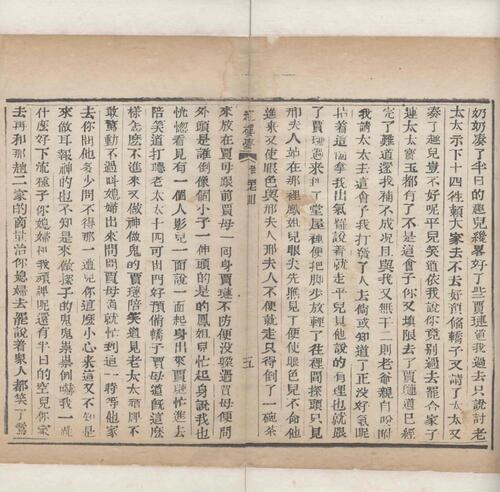 奶奶湊了半日的趣兒纔畧好了些賈璉說討老
太太示下十四徃賴大家去不去好預俻轎子又請了太太又
湊了趣兒豈不好呢平兒笑道依我說你竟別過去罷合家子
連太太寳玉都有了不是這會子你又填限去了賈璉道已經
完了難道還我補不成况且與我又無干二則老爺親自吩咐
我請太太去這會子我打發了人去倘或知道了正没好氣呢
指着這個拿我出氣罷說着就走平兒見他說的有理也就跟
了賈璉過來到了堂屋裡便把脚步放輕了往裡間探頭只見
邢夫人站在那裡鳳姐兒眼尖先瞧見了便使眼色兒不命他
進來又使眼色與邢夫人邢夫人不便就走只得倒了一碗茶
紅樓夢 五
來放在賈母跟前賈母一回身賈璉不防便没躱過賈母便問
外頭是誰倒像個小子一伸頭的是的鳳姐兒忙起身說我也
恍惚看見有一個人影兒一面說一面起身出來賈璉忙進去
陪笑道打聽老太太十四可出門好預偹轎子賈母道旣這麽
樣怎麽不進來又做神做鬼的賈璉陪笑道見老太太頑牌不
敢驚動不過呌媳婦出來問問賈母道就忙到這一時等他家
去你問他多少問不得那一遭兒你這麽小心來這又不知是
來做耳報神的也不知是來做探子的鬼鬼祟祟倒嚇我一跳
什麽好下流種子你媳婦和我頑牌呢還有半日的空兒你家
去再和那趙二家的商量治你媳婦去罷說着衆人都笑了鴛